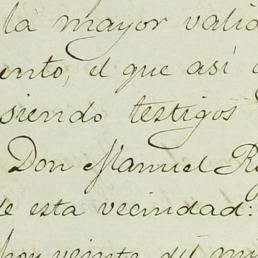 la mayor valid
ento, el que así
siendo testigos
Don Manuel R
de esta vecindad:
hoy veinte de mi